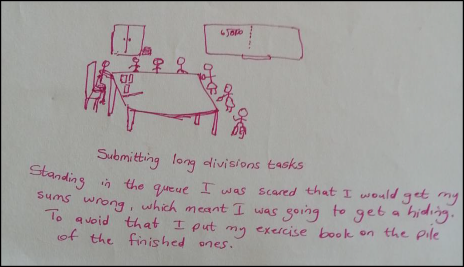 Submitting long divisions tasks
Standing in the queue I was scared that I would get my
sums wrong, which meant I was going to get a hiding.
To avoid that I put my exercise book on the pile
of the finished ones.